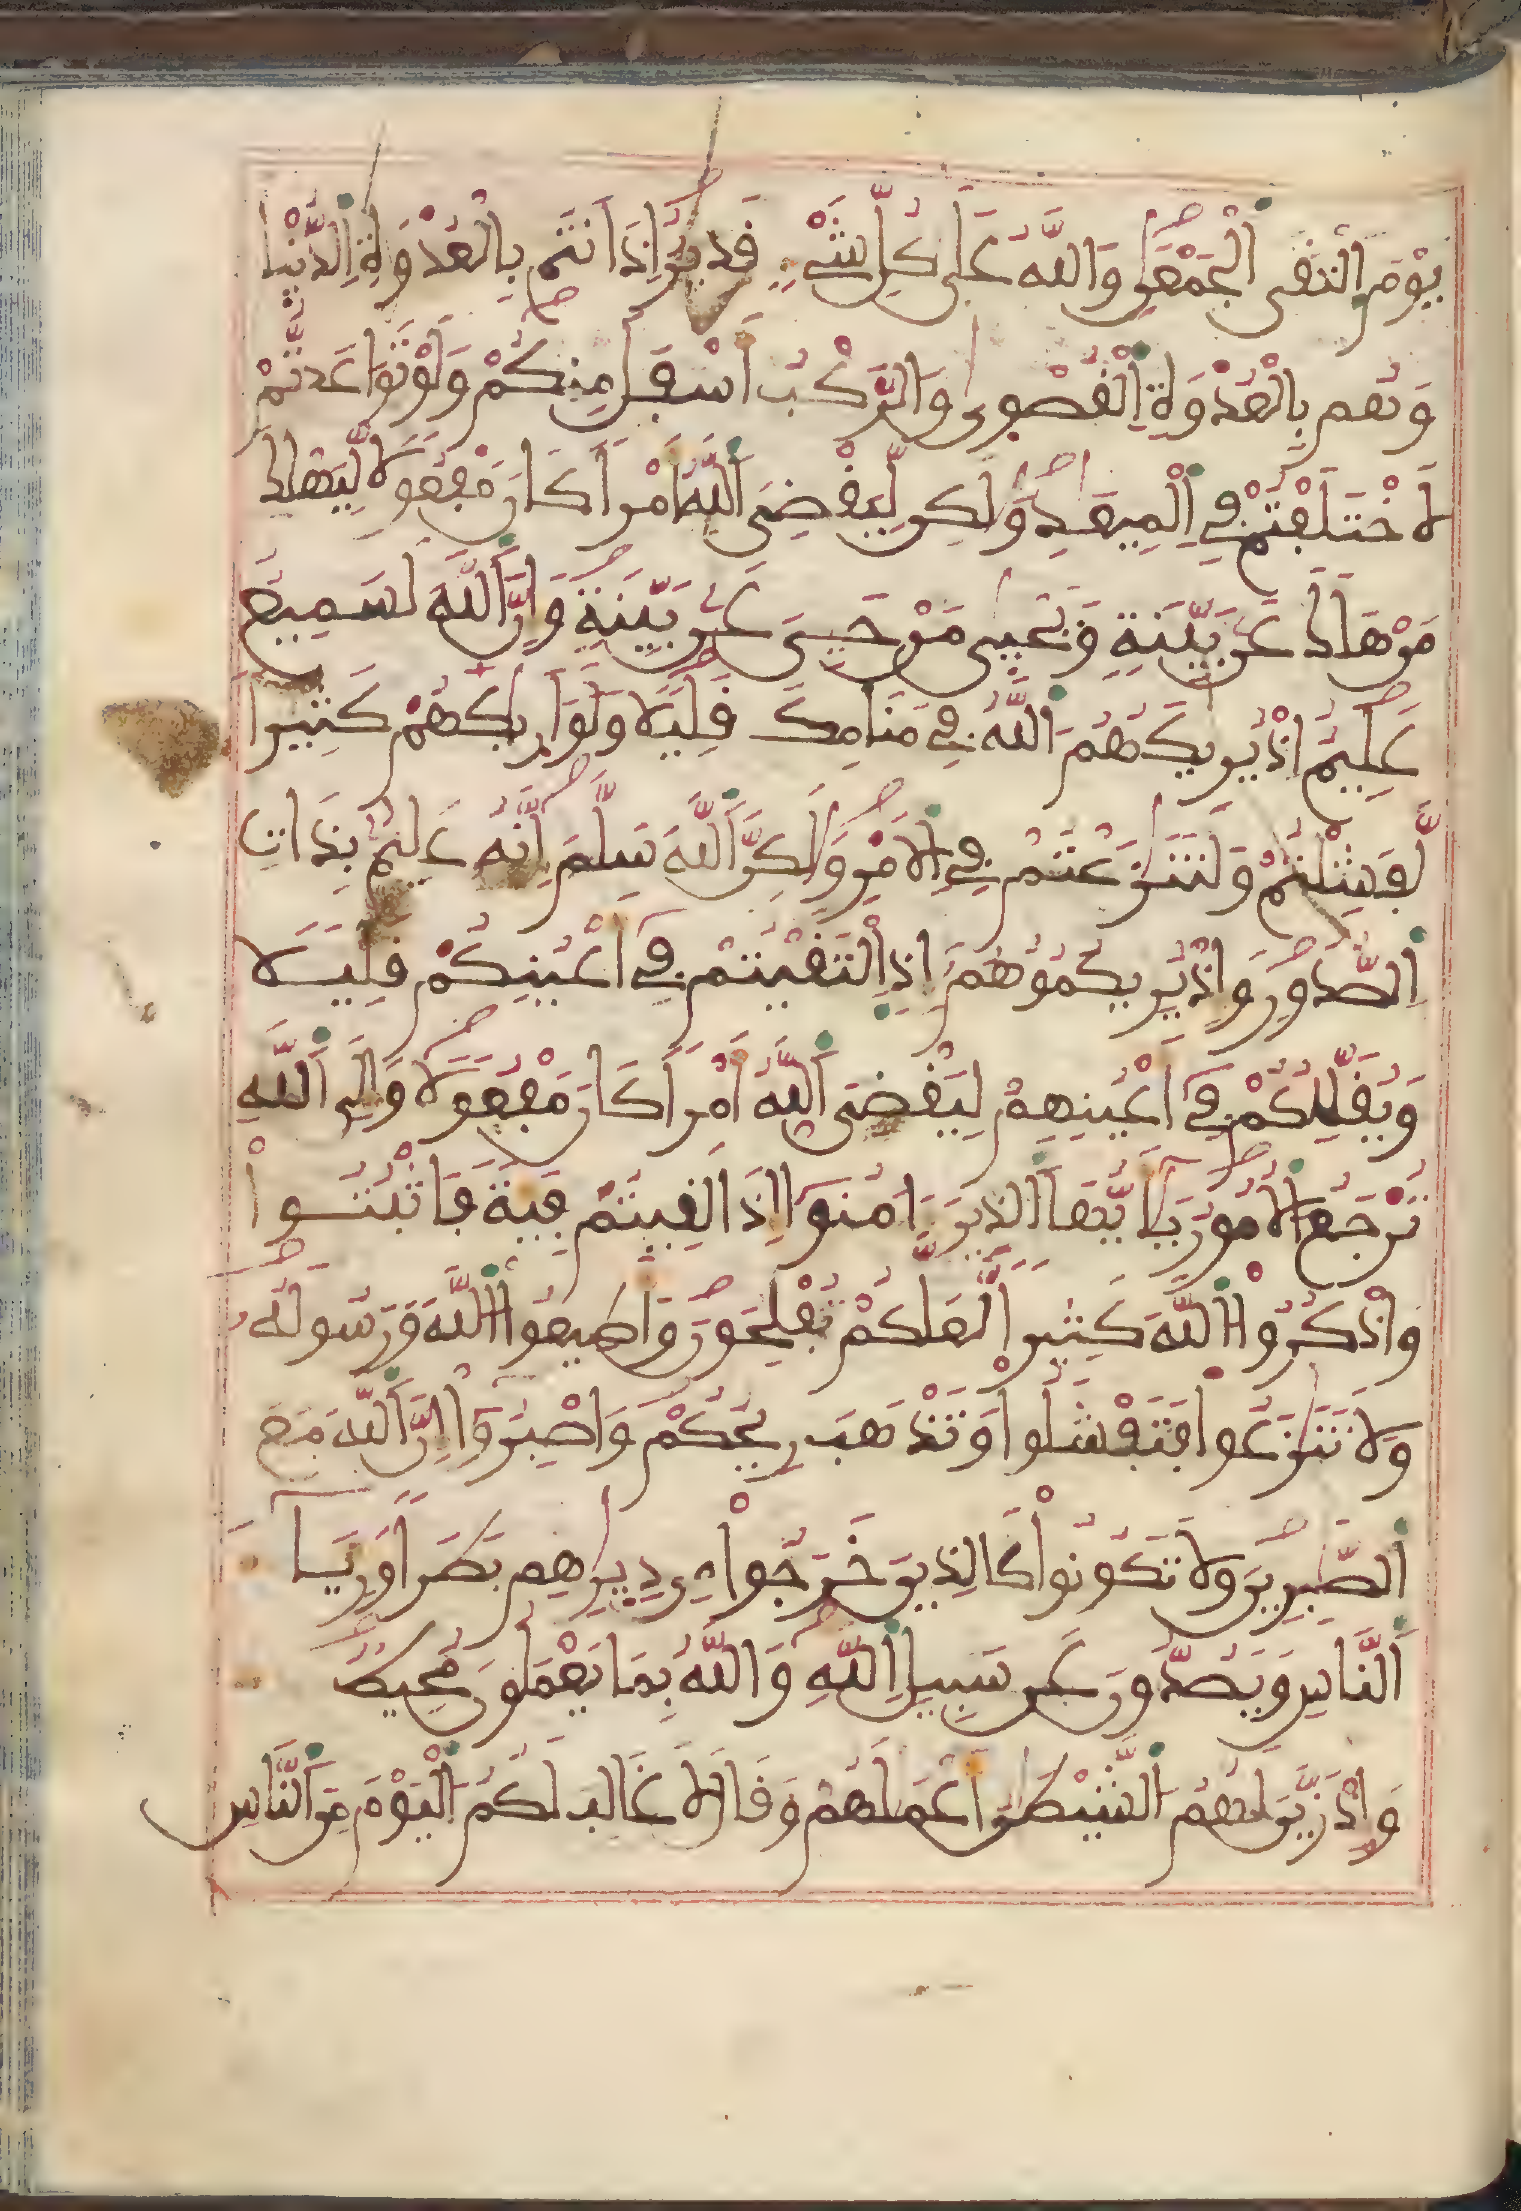 يَوْمَ اَلْتَقَى اَلْجَمْعَٰنِ وَاللَّهُ عَلَىٰ كُلِّ شَيْءٍ قَدِيرٌ اِذَ اَنتُم بِالْعُدْوَةِ اِلدُّنْيَا
وَهُم بِالْعُدْوَةِ اِلْقُصْوٜىٰ وَالرَّكْبُ أَسْفَلَ مِنكُمْ وَلَوْ تَوَاعَدتُّمْ
لَاخْتَلَفْتُمْ فِي اِلْمِيعَٰدِ وَلَٰكِن لِّيَقْضِيَ اَللَّهُ أَمْراً كَانَ مَفْعُولاً لِّيَهْلِكَ
مَنْ هَلَكَ عَنۢ بَيِّنَةٍ وَيَحْيَىٰ مَنْ حَيِيَ عَنۢ بَيِّنَةٍ وَإِنَّ اَللَّهَ لَسَمِيعٌ
عَلِيمٌ اِذْ يُرِيكَهُمُ اَللَّهُ فِي مَنَامِكَ قَلِيلاً وَلَوَ اَرٜىٰكَهُمْ كَثِيراً
لَّفَشِلْتُمْ وَلَتَنَٰزَعْتُمْ فِي اِلَامْرِ وَلَٰكِنَّ اَللَّهَ سَلَّمَ إِنَّهُ عَلِيمٌ بِذَاتِ
اِلصُّدُورِ وَإِذْ يُرِيكُمُوهُمُ إِذِ اِلْتَقَيْتُمْ فِي أَعْيُنِكُمْ قَلِيلاً
وَيُقَلِّلُكُمْ فِي أَعْيُنِهِمْ لِيَقْضِيَ اَللَّهُ أَمْراً كَانَ مَفْعُولاً وَإِلَى اَللَّهِ
تُرْجَعُ اُلُامُورُ يَٰأَيُّهَا اَلَّذِينَ ءَامَنُوا إِذَا لَقِيتُمْ فِيَةً فَاثْبُتُواْ
وَاذْكُرُواْ اُللَّهَ كَثِيراً لَّعَلَّكُمْ تُفْلِحُونَ وَأَطِيعُواْ اُللَّهَ وَرَسُولَهُ
وَلَا تَنَٰزَعُواْ فَتَفْشَلُواْ وَتَذْهَبَ رِيحُكُمْ وَاصْبِرُوا إِنَّ اَللَّهَ مَعَ
اَلصَّٰبِرِينَ وَلَا تَكُونُواْ كَالَّذِينَ خَرَجُواْ مِن دِيٰرِهِم بَطَراً وَرِيَآءَ
اَلنَّاسِ وَيَصُدُّونَ عَن سَبِيلِ اِللَّهِ وَاللَّهُ بِمَا يَعْمَلُونَ مُحِيطٌ
وَإِذْ زَيَّنَ لَهُمُ اُلشَّيْطَٰنُ أَعْمَٰلَهُمْ وَقَالَ لَا غَالِبَ لَكُمُ اُلْيَوْمَ مِنَ اَلنَّاسِ